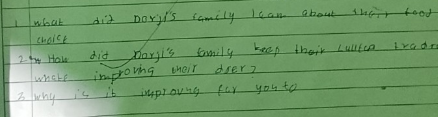 1 what did Dorji's family lean about their food
choice
2. How did Dorji's family keep their tradi
while improving their diet?
3 why is it improving for you to